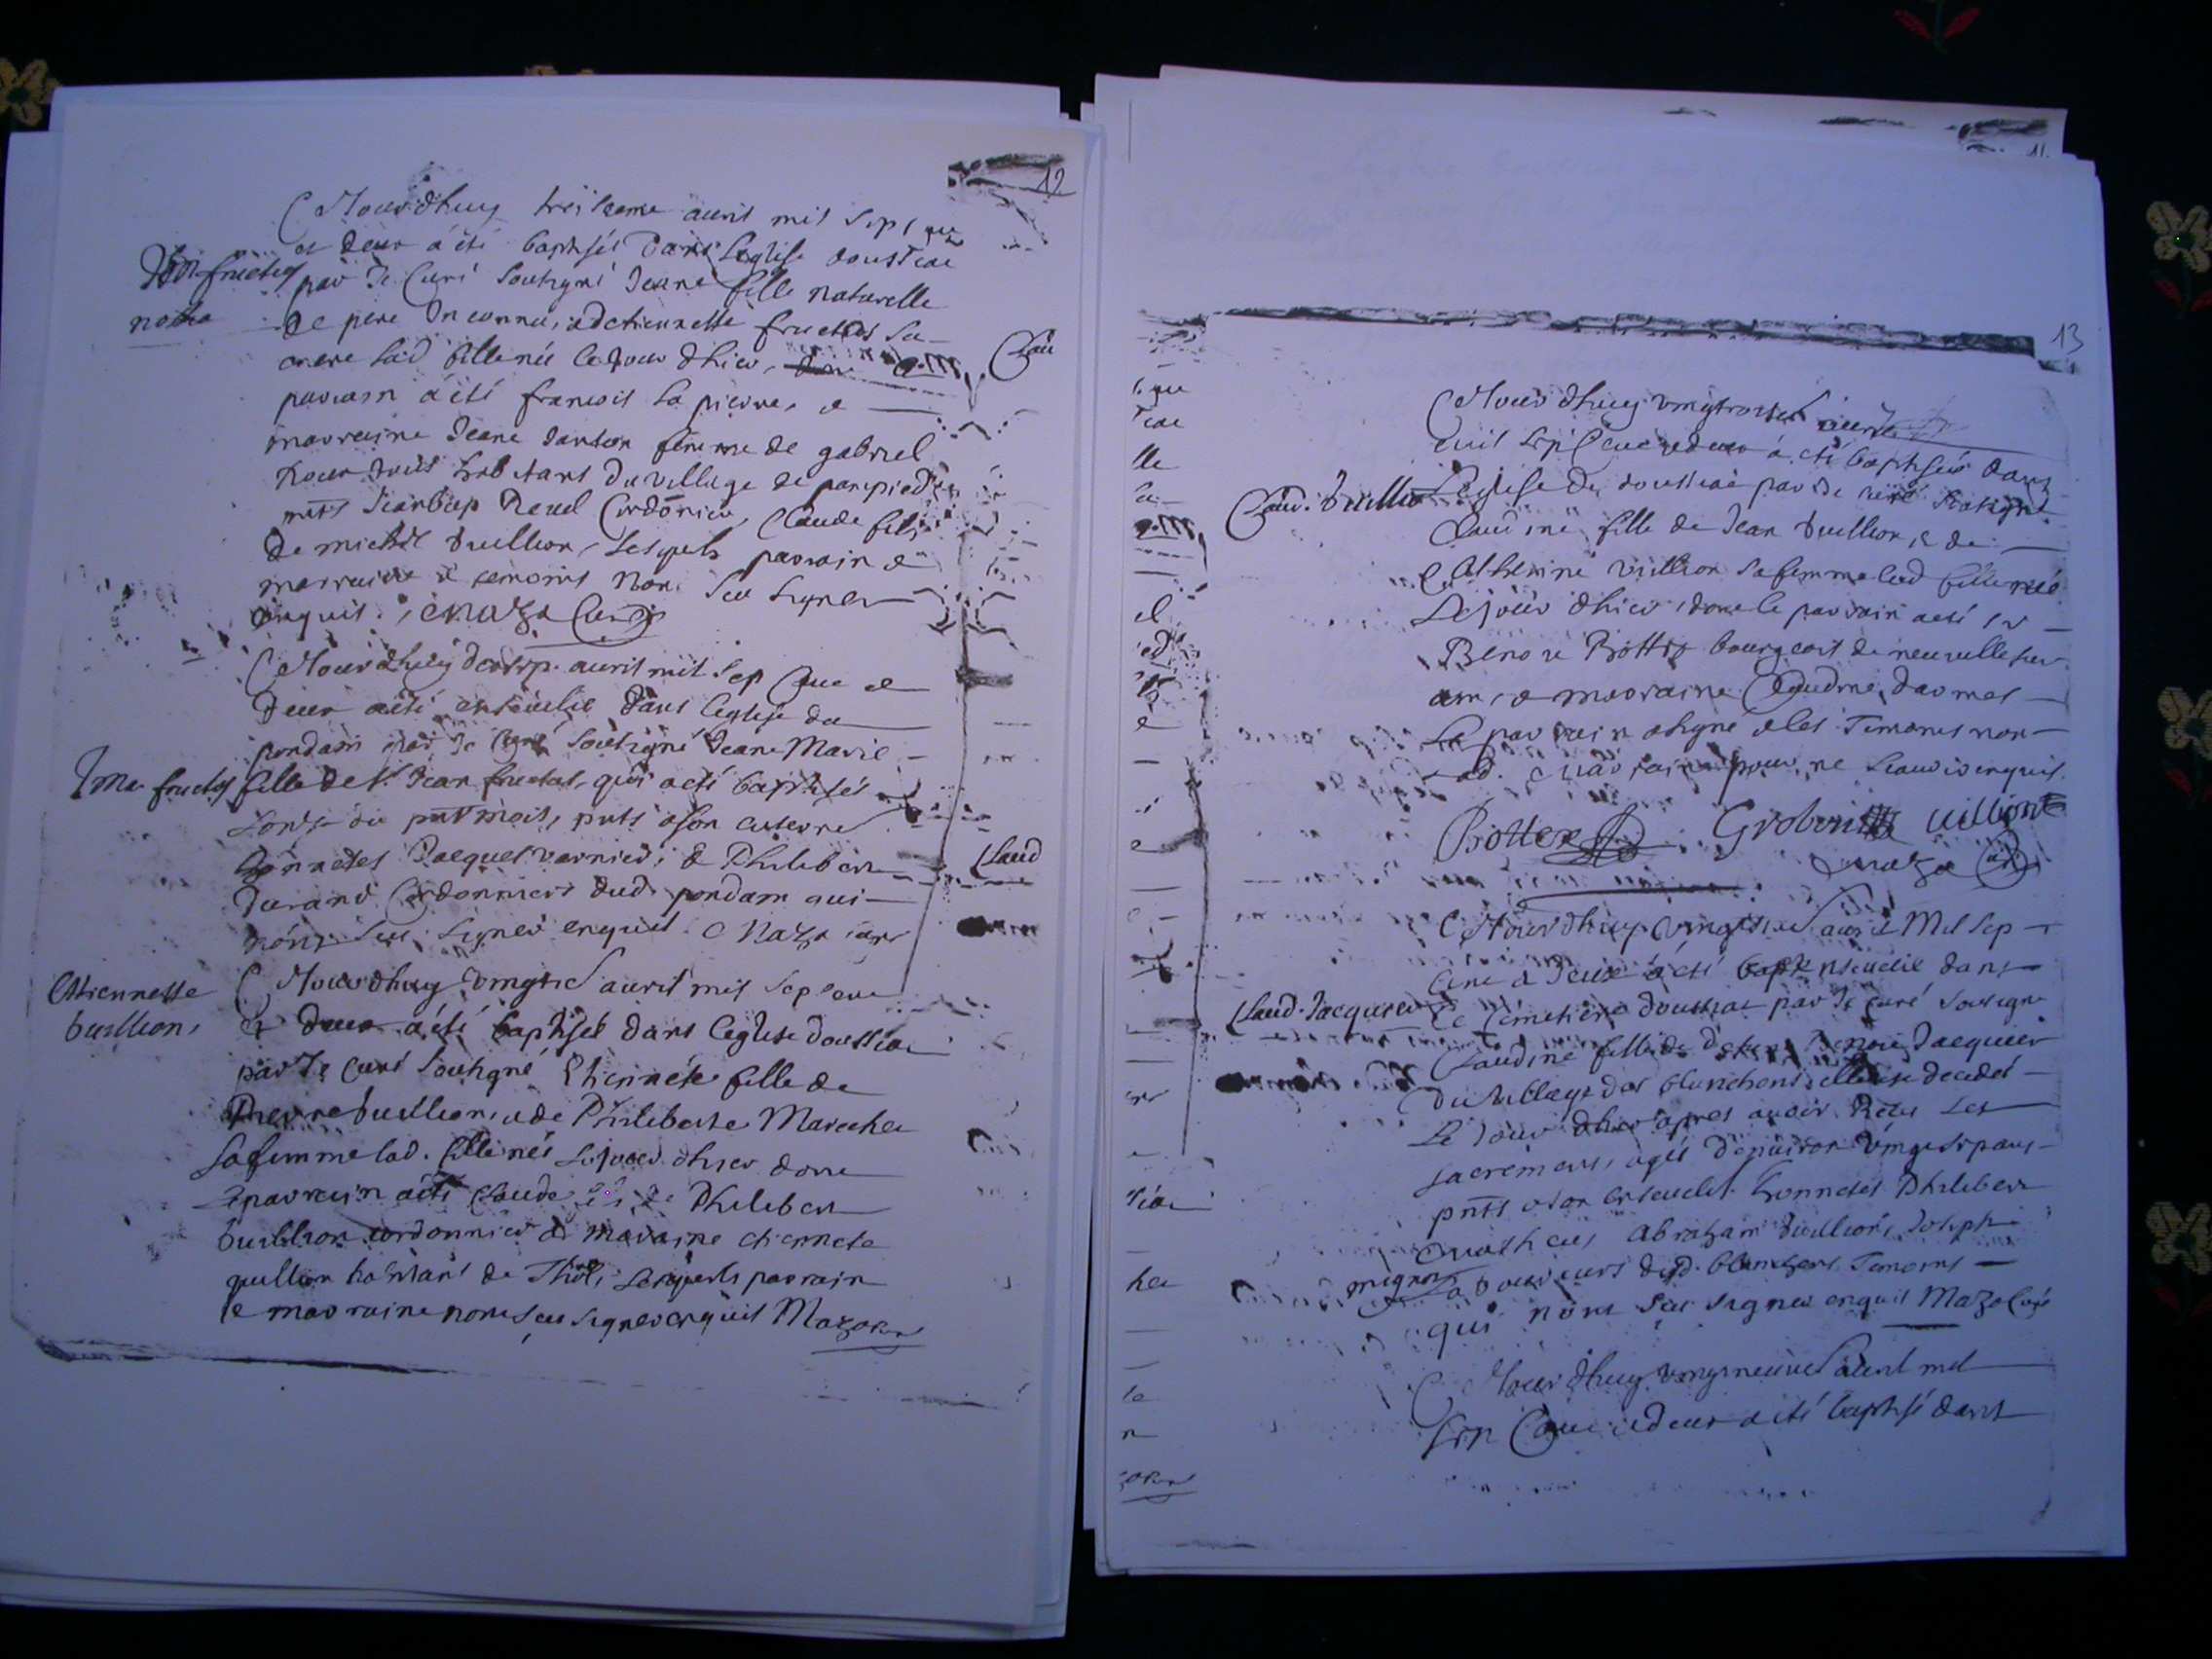 12
Ce Jourdhuy treiseme avril mil sept
et deux a été baptisée dans Leglise doussiat
par Je Curé soubsigné Jeane fille naturelle
de pere Inconnu, et detiennette fructus sa
mere lad fille née le Jour dhier,
parrain a été francois la pierre, et
marraine Jeane Janton femme de gabriel
habitans du village de
Cordonier, Claude fils
de michel vuillion, Lesquels parrain et
marraine et temoins non sceu signer
enquis. Maza Curé
Ce Jourdhuy dixsep. avril mil sep Cent et
deux a été ensevelie dans leglise du
pondain par Je Curé soubsigné Jeane Marie
Jne Ma. fructus
fille de Sr Jean fructus, qui a été baptisée
du pnt mois, pnts a son enterre
honnetes Jacques varnier, et Philibert
Durand Cordonniers dud. pondain qui
nont sceu signer enquis. Maza Curé
Etiennette
vuillion,
Ce Jourdhuy vingtie avril mil sep cent
et deux a été baptisée dans leglise doussiat
par Je Curé soubsigné Etiennete fille de
Pierre vuillion, et de Philiberte Marechea
sa femme lad. fille née le jour dhier dont
le parrain a été Claude Philibert
vuillion cordonnier et maraine etiennete
vuillion habitans de Thol, Lesquels parrain
et marraine nont sceu signer enquis Maza Curé
13
Ce Jour dhuy vingtrois avril
mil sept Cent et deux a été baptisée dans
Claud. vuillion
Leglise de doussiat par Je curé soubsigné
Claudine fille de Jean vuillion, et de
Catherine vuillion sa femme lad fille née
Le jour dhier, dont le parrain a été sr
Benoit Bottex bourgeois de neuville sur
ain, et marraine Claudine darmes
Le parrain a signé et les Temoins non
lad. Marraine pour ne scavoir enquis.
Bottex Grobon vuillion
Maza Curé
Ce Jour dhuy vingt avril Mil sep
Cent et deux a été ensevelie dans
Claud. Jacquier
Le Cimetiere doussiat par Je curé soubsigné
Claudine fille de Benoit Jacquier
du village des blanchons, elle est decedée
Le Jour dhier apres avoir Recu Les
sacremens, agée denviron vingt sept ans
pnts a son ensevelis. honnetes Philibert
Mathieu, Abraham vuillion, Joseph
mignon Laboureurs dud. blanchons Temoins
qui nont sceu signer enquis Maza Curé
Ce Jour dhuy vingneuvie avril mil
sep Cent et deux a été baptisé dans